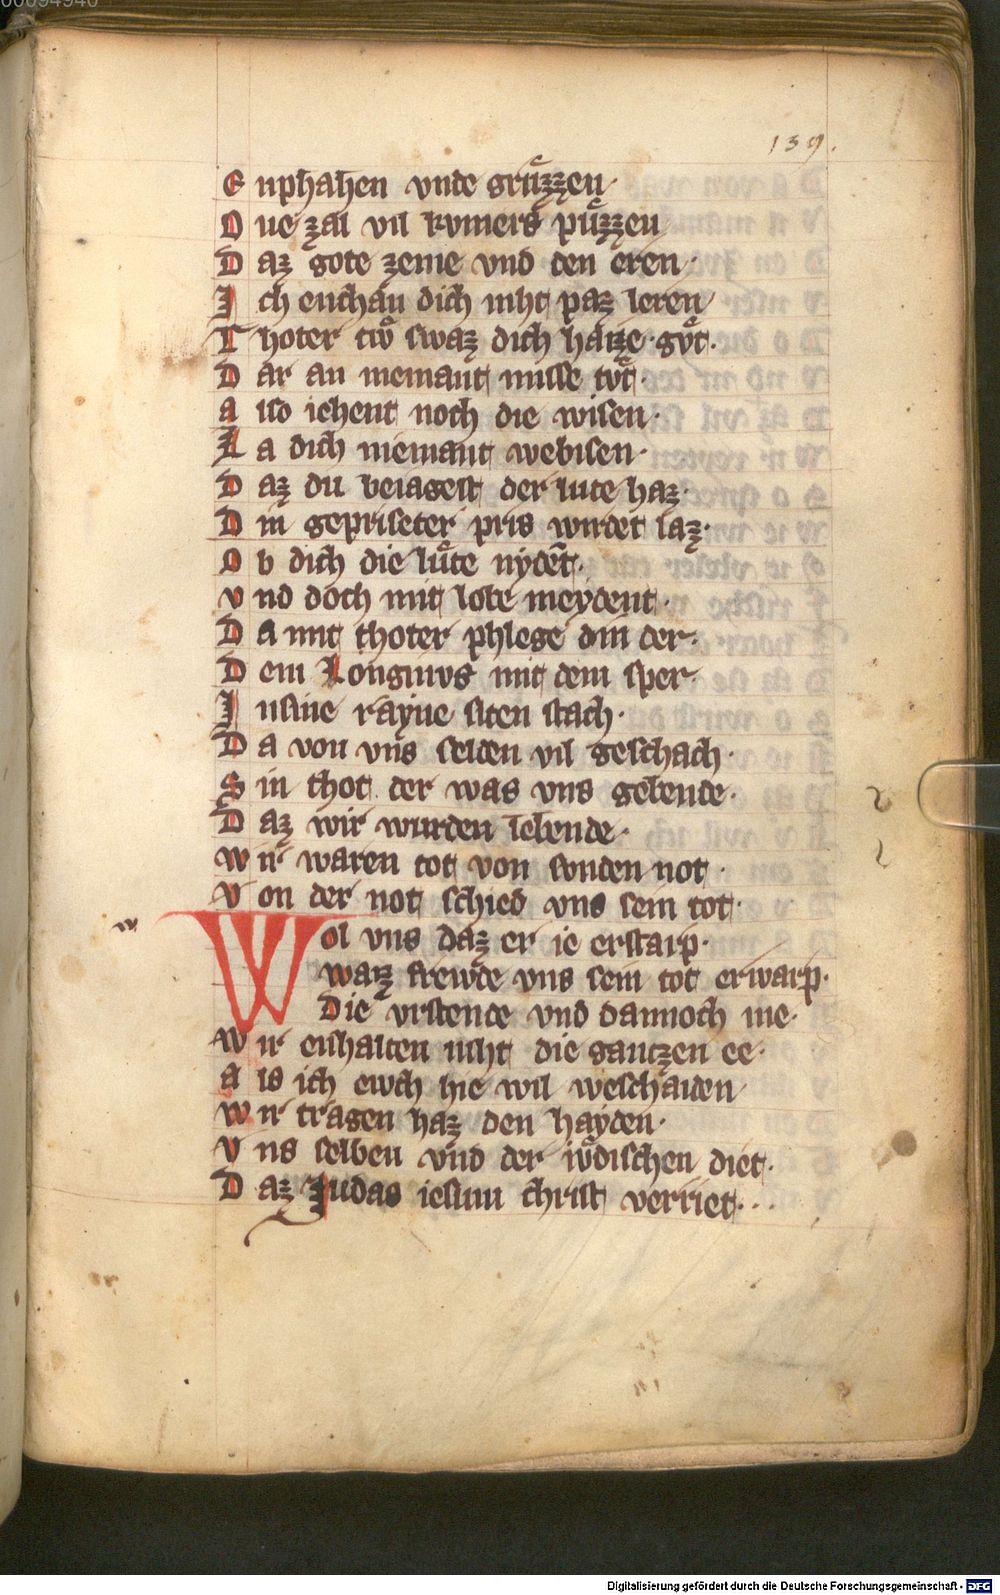 00094940
139.
E nphahen vnde gruͤzzen·
D ue zal vil kvmers puͤzzen
D az gote zeme vnd den eren·
J ch enchan dich niht paz leren
T hoter tvͦ swaz dich haizze·gvͦt·
D ar an niemant misse tvͦt·
A lso iehent noch die wisen·
L a dich niemant webisen·
D az du beiagest der lute haz·
D in gepriseter pris wirdet laz·
O b dich die luͤte nydēt·
V nd doch mit lobe meydent·
D a mit thoter phlege din der·
D em Longinvs mit dem sper
J nsine rayne siten stach·
D a von vns selden vil geschach·
S in thot der was vns gebende·
D az wir wurden lebende·
W ir waren tot von sunden not·
V on der not schied vns sein tot·
w
Wol vns daz er ie erstarp·
Waz frewde vns sein tot erwarp·
Die vrstende vnd dannoch me·
W ir enhalten niht die gantzen ee·
A ls ich ewch hie wil weschaiden
W ir tragen haz den hayden·
V ns selben vnd der ivͤdischen diet·
D az Judas iesum christ verriet·..
Digitalisierung gefördert durch die Deutsche Forschungsgemeinschaft - DFG